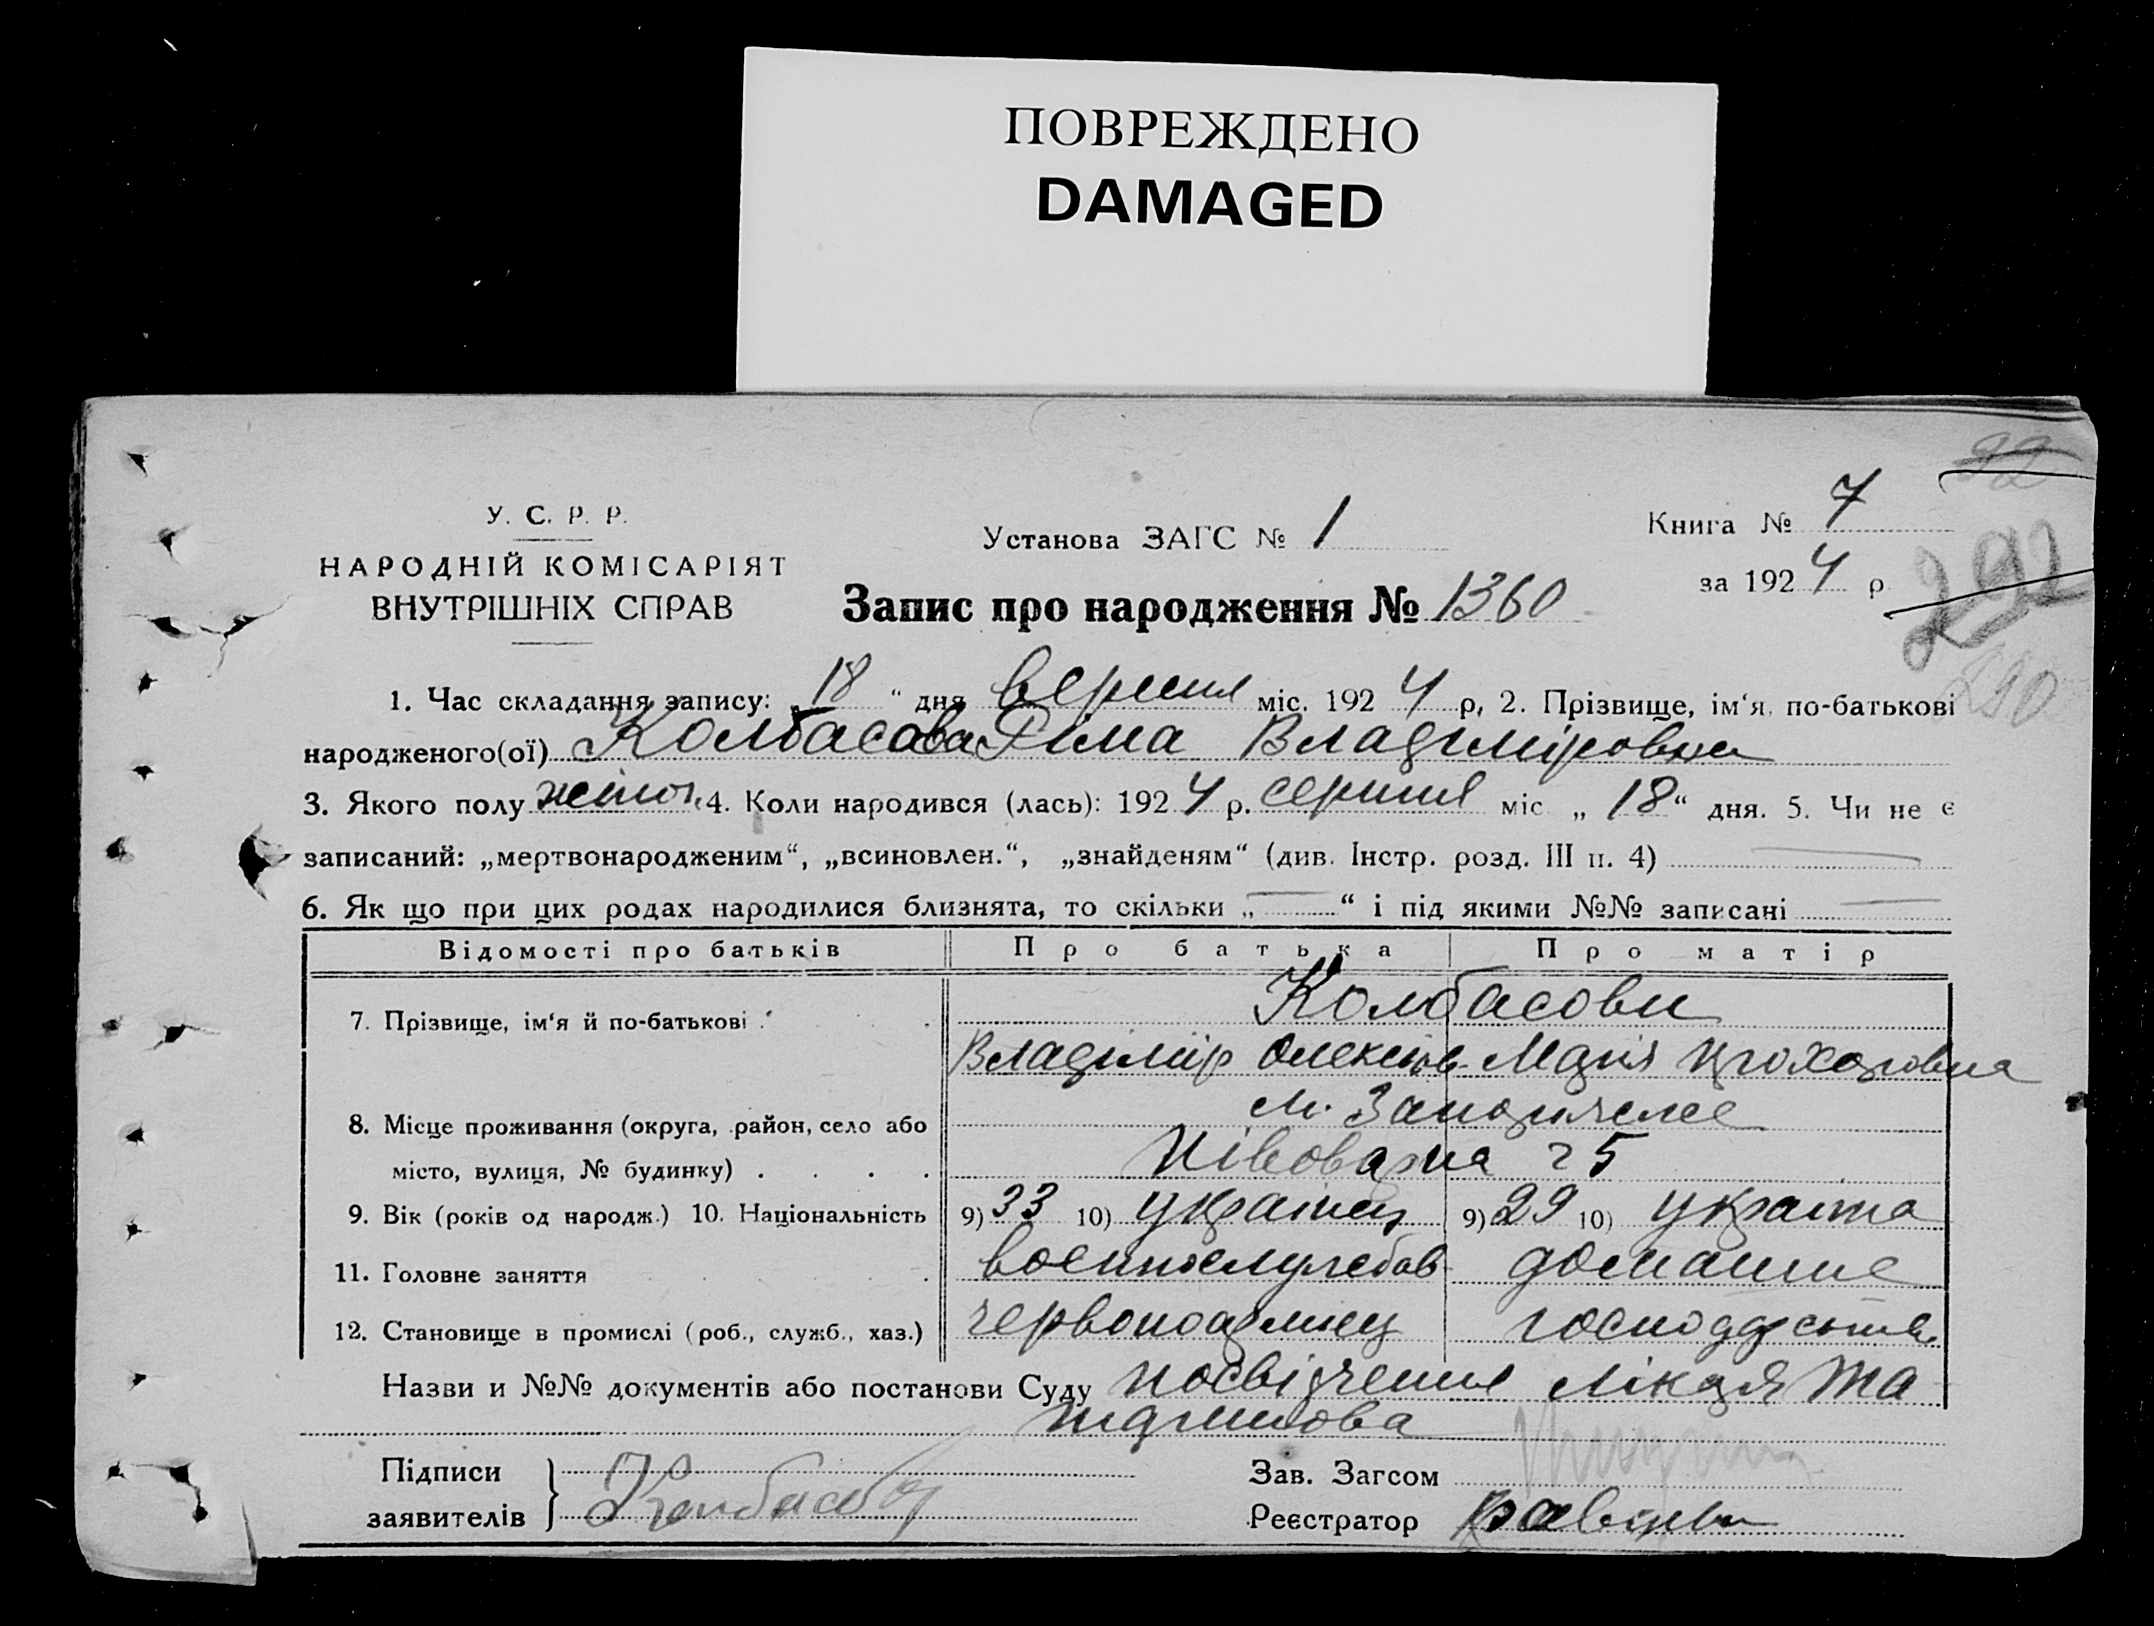 ПОВРЕЖДЕНО
DAMAGED
92
У. С. Р. Р.
НАРОДНІЙ КОМІСАРІЯТ
ВНУТРІШНІХ СПРАВ
Установа ЗАГС № 1
Книга № 7
за 1924 р
292
Запис про народження № 1360
290
1. Час складання запису: „18“ дня вересня міс. 1924 р, 2. Прізвище, ім‘я, по-батькові
народженого(ої) Колбасова Ріма Владіміровна
3. Якого полу жіноч. 4. Коли народився (лась): 1924 р. серпня міс „18“ дня. 5. Чи не є
записаний: „мертвонародженим“, „всиновлен.“, „знайденям“ (див. Інстр. розд. III п. 4)
6. Як що при цих родах народилися близнята, то скільки „—“ і під якими №№ записані —
Відомості про батьків Про батька Про матір
7. Прізвище, ім‘я й по-батькові Колбасови
Владімір Олексіїв Марія Прохоровна
8. Місце проживання (округа, район, село або м. Запоріжжє
місто, вулиця, № будинку) Півоварна 25
9. Вік (років од народж.) 10. Національність 9) 33 10) українец 9) 29 10) українка
11. Головне заняття военнослужбов домашнє
12. Становище в промислі (роб., служб., хаз.) червоноармієц господарство
Назви и №№ документів або постанови Суду посвідчення лікаря та
Підписи
заявителів } Колбасов
Зав. Загсом
Реєстратор